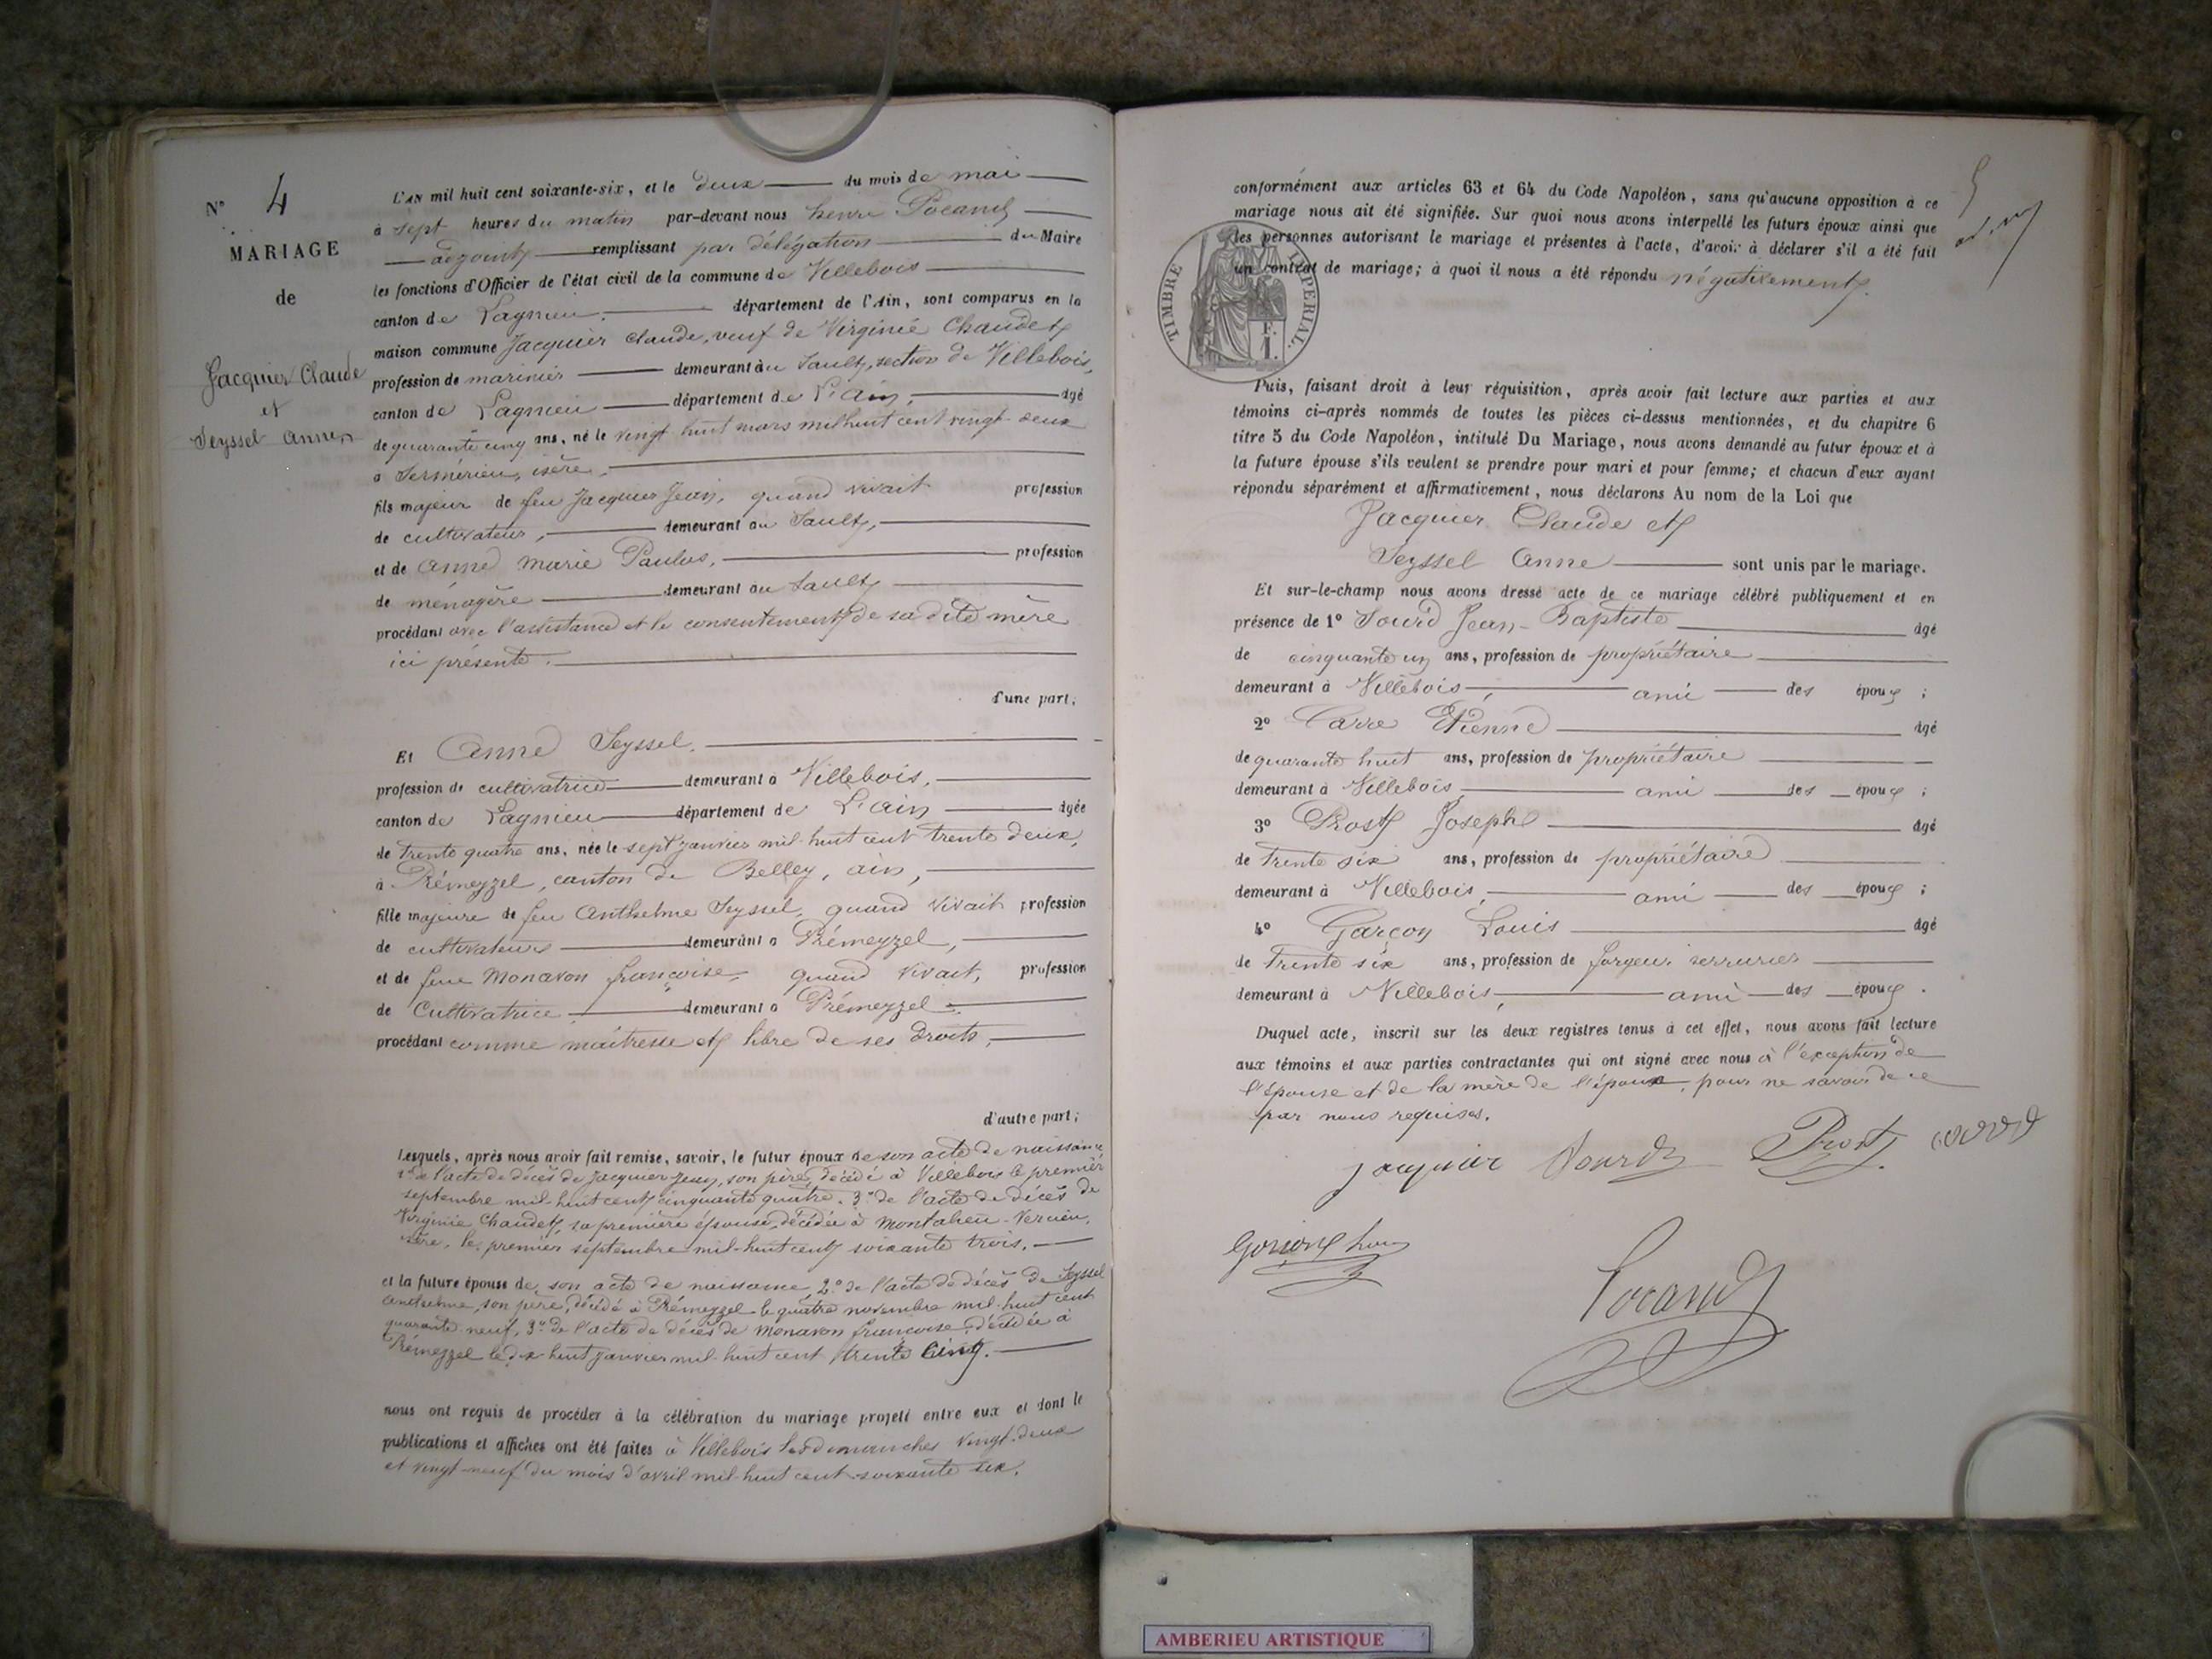 N° 4
MARIAGE
de
Jacquier Claude
et
Seyssel Anne
L'AN mil huit cent soixante-six, et le deux du mois de mai
à sept heures du matin par-devant nous henri Pocand
adjoint remplissant par délégation du Maire
les fonctions d'Officier de l'état civil de la commune de Villebois
canton de Lagnieu, département de l'Ain, sont comparus en la
maison commune Jacquier Claude, veuf de Virginie Chaudet
profession de marinier demeurant au Sault, section de Villebois,
canton de Lagnieu département de l'Ain, âgé
de quarante cinq ans, né le vingt huit mars mil huit cent vingt-deux
à Sermérieu, isère,
fils majeur de feu Jacquier Jean, quand vivait profession
de cultivateur, demeurant au Sault,
et de Anne Marie Paulus, profession
de ménagère demeurant au Sault
procédant avec l'assistance et le consentement de sa dite mère
ici présente.
d'une part;
Et Anne Seyssel,
profession de cultivatrice demeurant à Villebois,
canton de Lagnieu département de L'ain âgée
de trente quatre ans, née le sept janvier mil-huit cent trente deux,
à Prémeyzel, canton de Belley, ain,
fille majeure de feu Anthelme Seyssel, quand vivait profession
de cultivateur demeurant à Prémeyzel,
et de feue Monavon françoise, quand vivait, profession
de Cultivatrice, demeurant à Prémeyzel
procédant comme maîtresse et libre de ses droits,
d'autre part;
Lesquels, après nous avoir fait remise, savoir, le futur époux de son acte de naissance
2° de l'acte de décès de Jacquier Jean, son père, décédé à Villebois le premier
septembre mil-huit cent cinquante quatre. 3° de l'acte de décès de
Virginie Chaudet, sa première épouse, décédée à Montalieu-Vercieu,
isère, le premier septembre mil-huit cent soixante trois.
et la future épouse de son acte de naissance, 2° de l'acte de décès de Seyssel
anthelme, son père, décédé à Prémeyzel le quatre novembre mil-huit cent
quarante neuf, 3° de l'acte de décès de Monavon françoise, décédée à
Prémeyzel le dix huit janvier mil-huit cent trente Cinq.
nous ont requis de procéder à la célébration du mariage projeté entre eux et dont les
publications et affiches ont été faites à Villebois les dimanches vingt-deux
et vingt-neuf du mois d'avril mil-huit cent soixante six,
5
conformément aux articles 63 et 64 du Code Napoléon, sans qu'aucune opposition à ce
mariage nous ait été signifiée. Sur quoi nous avons interpellé les futurs époux ainsi que
les personnes autorisant le mariage et présentes à l'acte, d'avoir à déclarer s'il a été fait
un contrat de mariage; à quoi il nous a été répondu négativement.
TIMBRE IMPÉRIAL.
Puis, faisant droit à leur réquisition, après avoir fait lecture aux parties et aux
témoins ci-après nommés de toutes les pièces ci-dessus mentionnées, et du chapitre 6
titre 5 du Code Napoléon, intitulé Du Mariage, nous avons demandé au futur époux et à
la future épouse s'ils veulent se prendre pour mari et pour femme; et chacun d'eux ayant
répondu séparément et affirmativement, nous déclarons Au nom de la Loi que
Jacquier Claude et
Seyssel Anne sont unis par le mariage.
Et sur-le-champ nous avons dressé acte de ce mariage célébré publiquement et en
présence de 1° Sourd Jean-Baptiste âgé
de cinquante un ans, profession de propriétaire
demeurant à Villebois, ami des époux;
2° Carre Etienne âgé
de quarante huit ans, profession de propriétaire
demeurant à Villebois, ami des époux;
3° Prost Joseph âgé
de trente six ans, profession de propriétaire
demeurant à Villebois, ami des époux;
4° Garçon Louis âgé
de trente six ans, profession de forgeur serrurier
demeurant à Villebois, ami des époux.
Duquel acte, inscrit sur les deux registres tenus à cet effet, nous avons fait lecture
aux témoins et aux parties contractantes qui ont signé avec nous à l'exception de
l'épouse et de la mère de l'époux, pour ne savoir de ce
par nous requises.
jacquier Sourd Prost
Pocand
AMBERIEU ARTISTIQUE